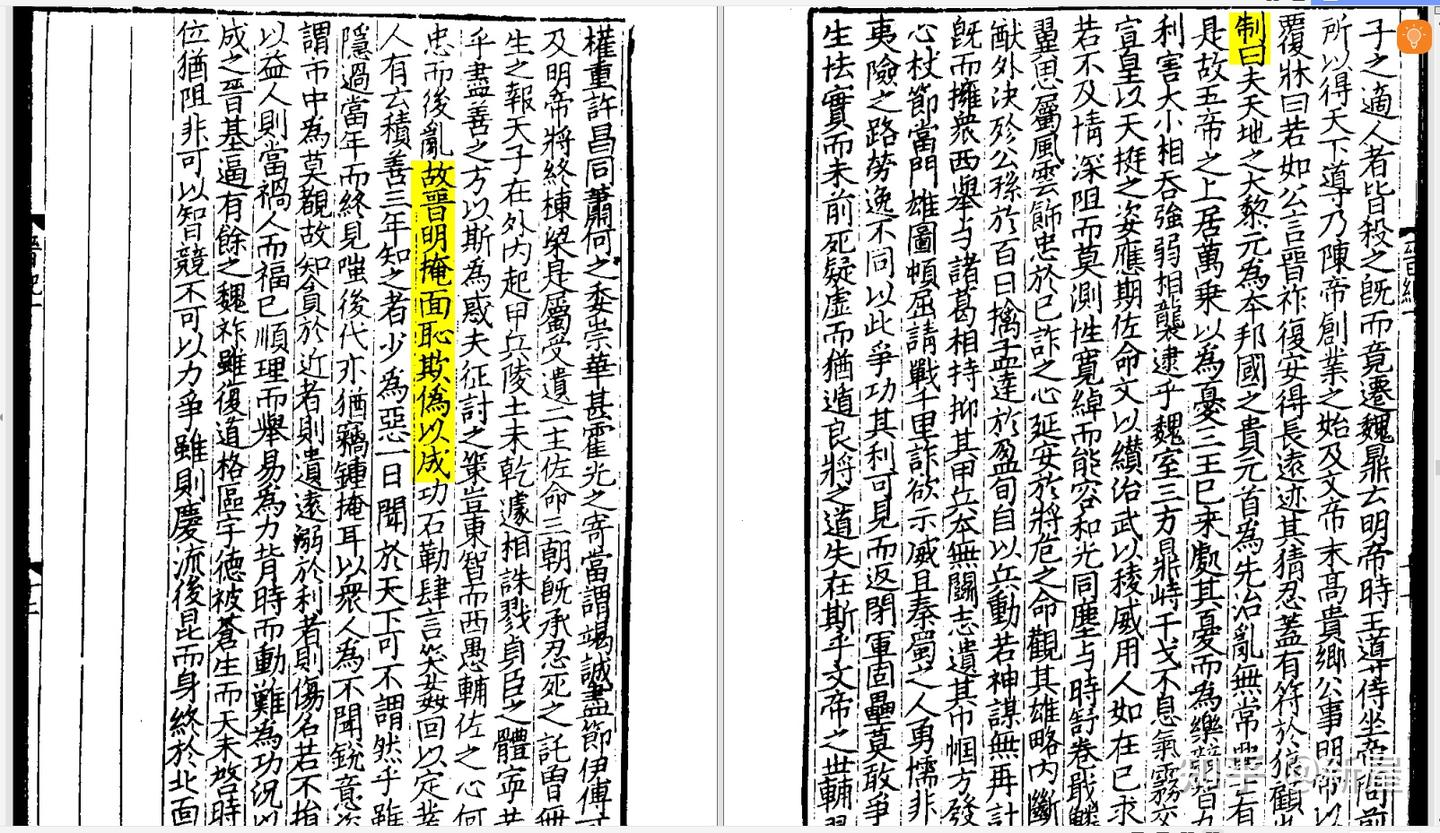 子之適人者皆殺之旣而竟遷魏鼎云明帝時王導侍坐帝問前
所以得天下導乃陳帝創業之始及文帝末高貴鄉公事明帝以
覆牀曰若如公言晉祚復安得長遠迹其猜忍蓋有符於狼顧也
制曰夫天地之大黎元為本邦國之貴元首為先治亂無常興有
是故五帝之上居萬乘以為憂三王已來處其憂而為樂競智力
利害大小相吞強弱相襲逮乎魏室三方鼎峙干戈不息氣霧交
宣皇以天挺之姿應期佐命文以纘治武以稜威用人如在己求
若不及情深阻而莫測性寬綽而能容和光同塵与時舒卷戢鱗
翼思屬風雲飾忠於已詐之心延安於將危之命觀其雄略內斷
猷外決殄公孫於百日擒孟達於盈旬自以兵動若神謀無再計
旣而擁衆西舉与諸葛相持抑其甲兵本無鬭志遺其巾幗方發
心杖節當門雄圖頓屈請戰千里詐欲示威且秦蜀之人勇懦非
夷險之路勞逸不同以此爭功其利可見而返閉軍固壘莫敢爭
生怯實而未前死疑虛而猶遁良將之道失在斯乎文帝之世輔翼
權重許昌同蕭何之委崇華甚霍光之寄當謂竭誠盡節伊傅可
及明帝將終棟梁是屬受遺二主佐命三朝旣承忍死之託曾無
生之報天子在外內起甲兵陵土未乾遽相誅戮貞臣之體寧若
乎盡善之方以斯為惑夫征討之策豈東智而西愚輔佐之心何
忠而後亂故晉明掩面恥欺偽以成功石勒肆言笑姦回以定業
人有云積善三年知之者少為惡一日聞於天下可不謂然乎雖
隱過當年而終見嗤後代亦猶竊鍾掩耳以衆人為不聞銳意盜
謂市中為莫覩故知貪於近者則遺遠溺於利者則傷名若不損
以益人則當禍人而福己順理而舉易為力背時而動難為功況以
成之晉基逼有餘之魏祚雖復道格區宇德被蒼生而天未啓時
位猶阻非可以智競不可以力爭雖則慶流後昆而身終於北面
晉紀一
十二